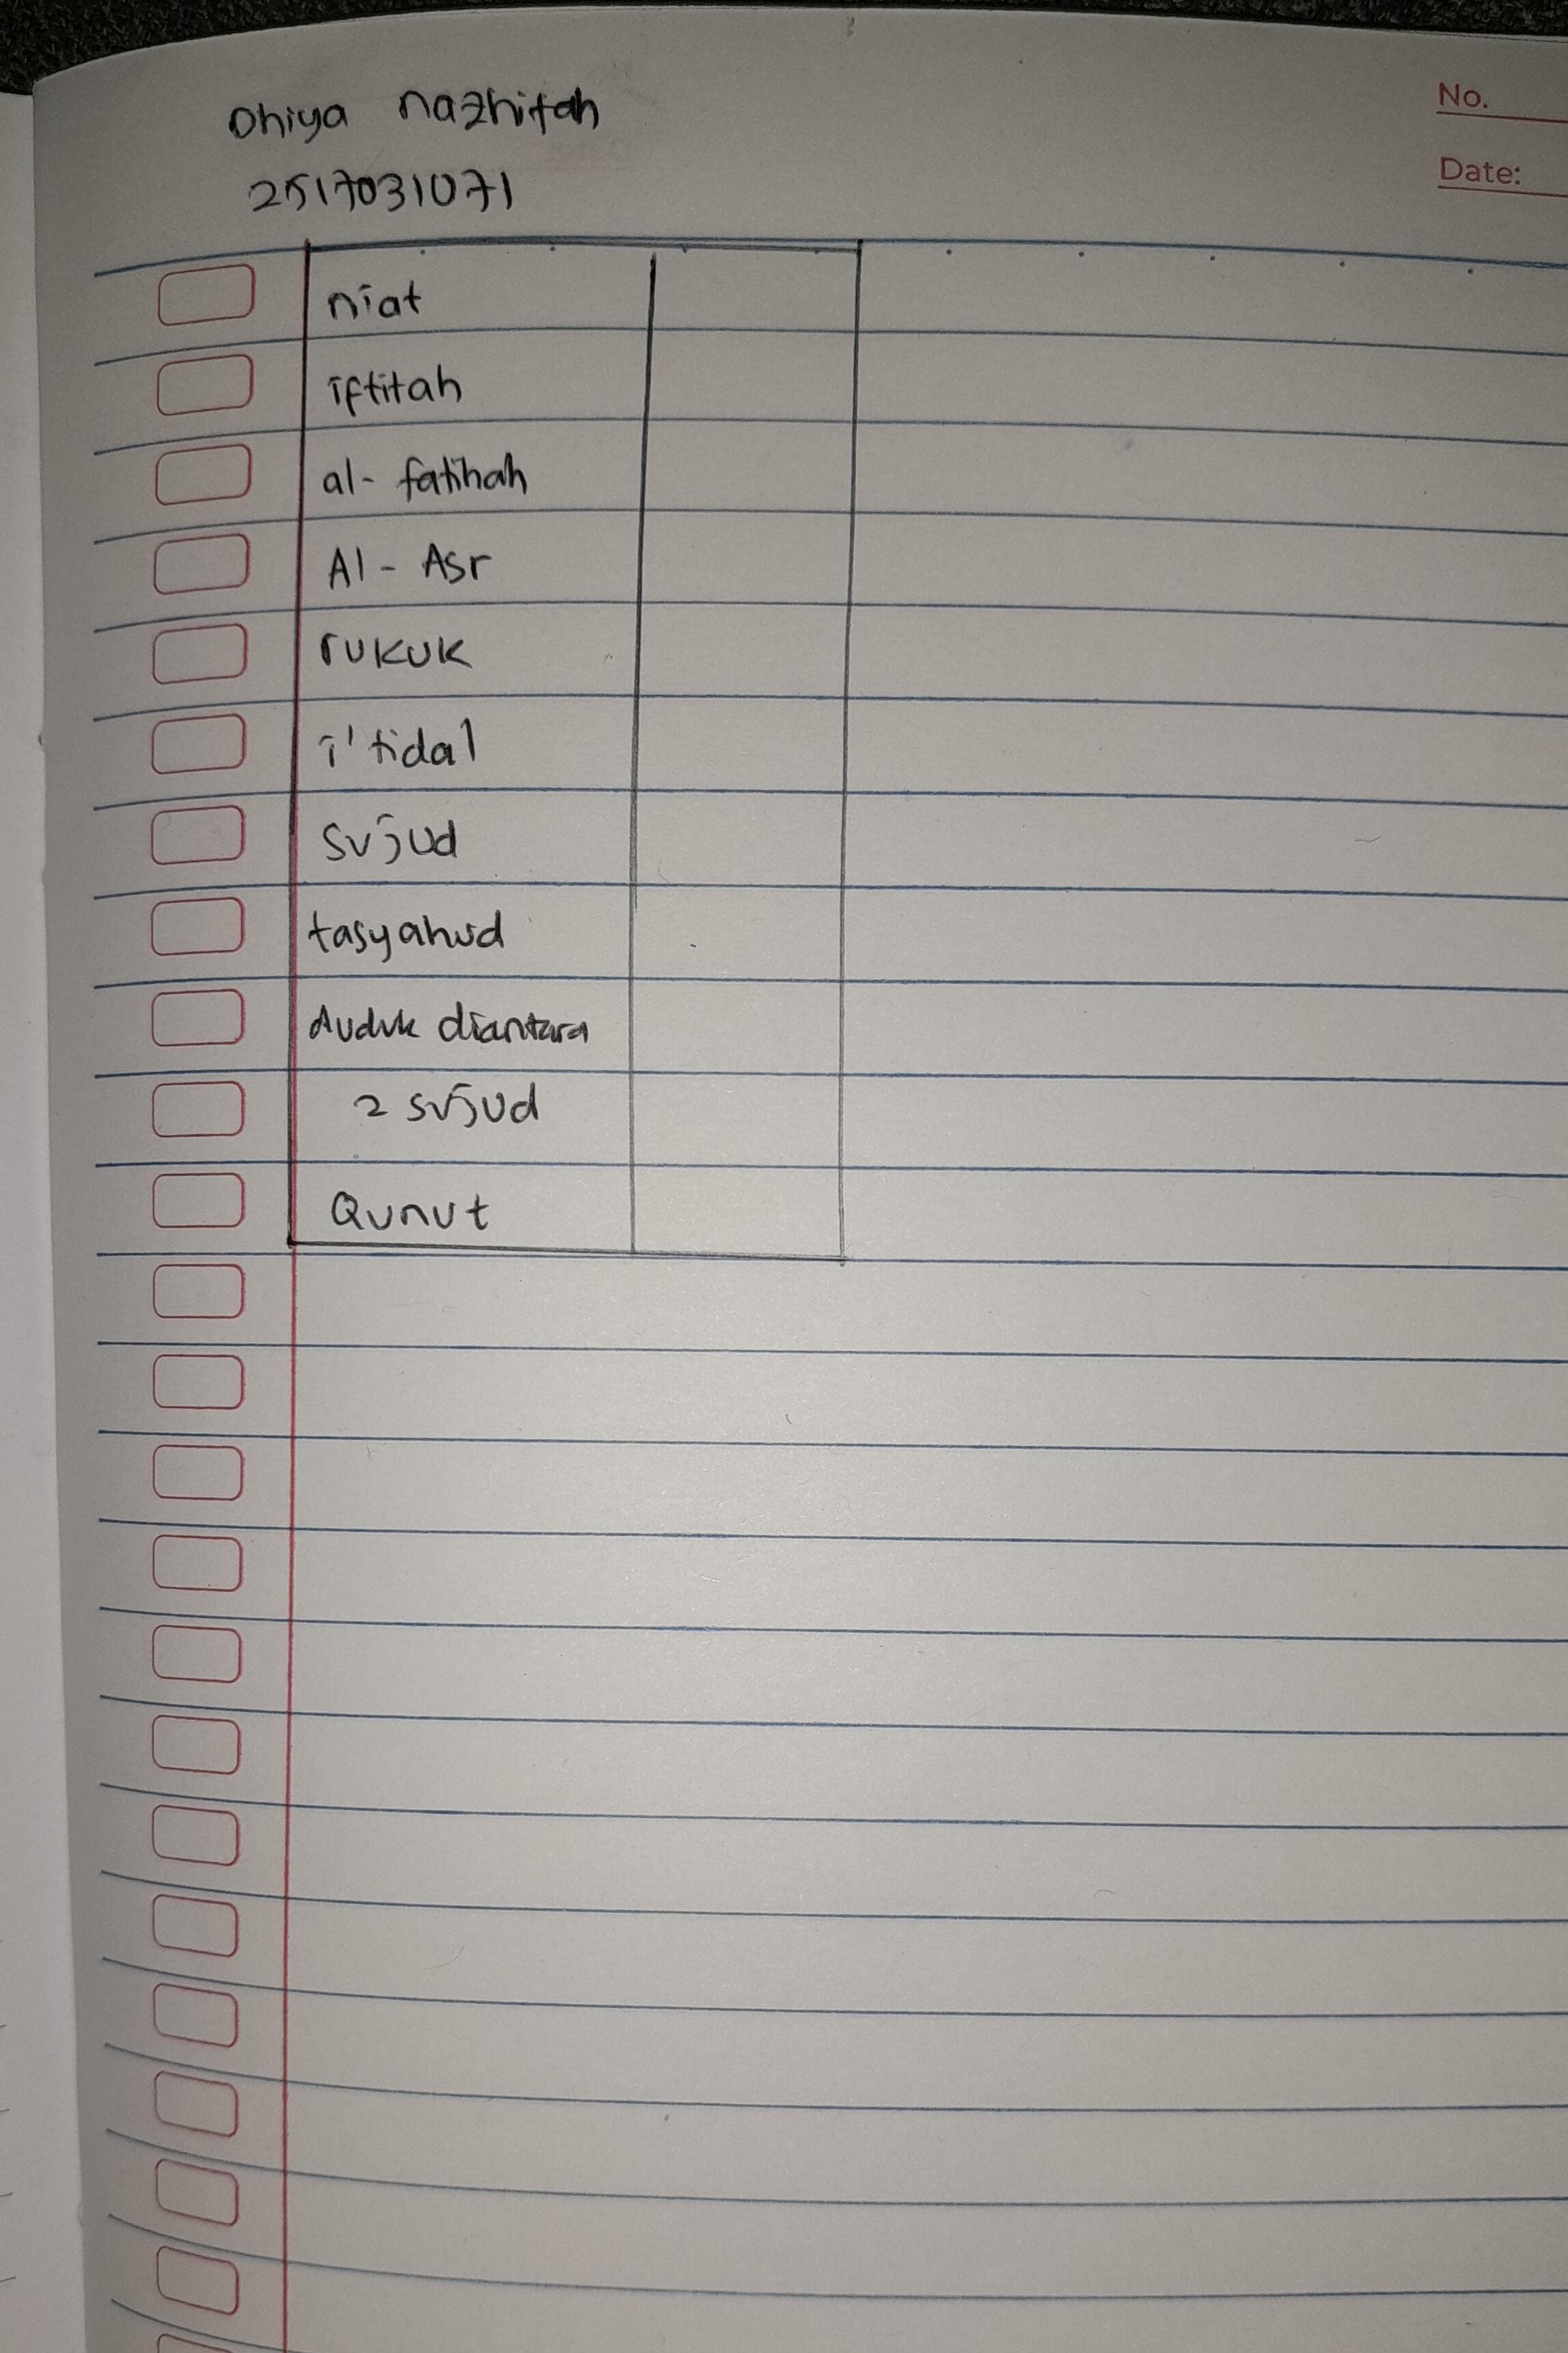 Dhiya nazhifah
2517031071
No.
Date:
niat
iftitah
al- fatihah
Al - Asr
rukuk
i'tidal
sujud
tasyahud
duduk diantara
2 sujud
Qunut